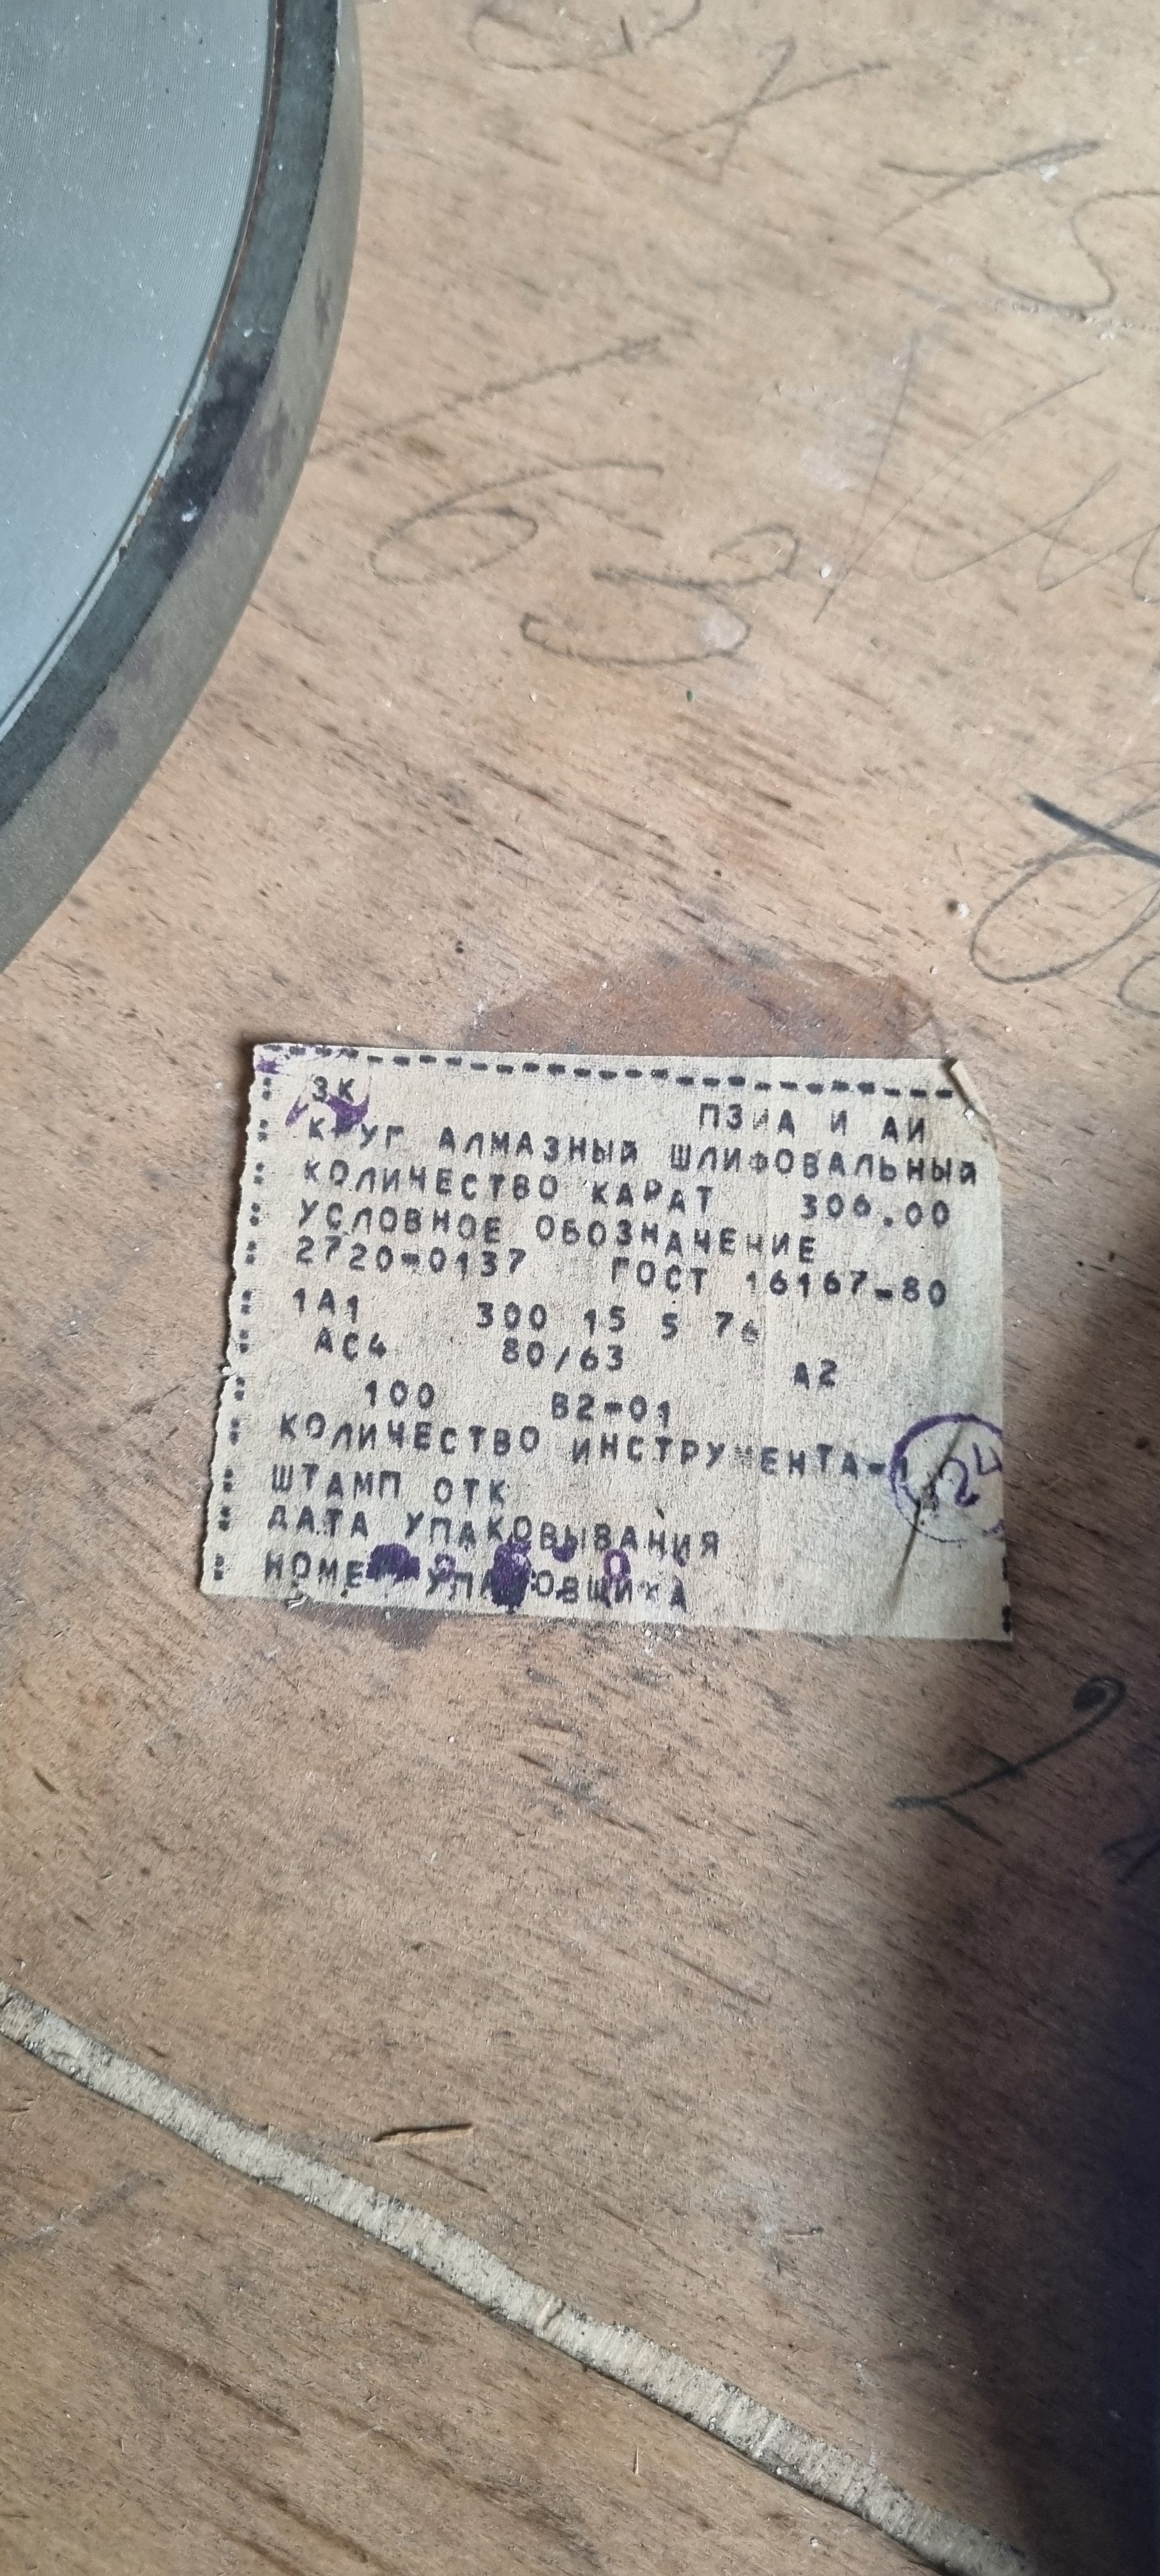 ЗК ПЗИА И АИ
КРУГ АЛМАЗНЫЙ ШЛИФОВАЛЬНЫЙ
КОЛИЧЕСТВО КАРАТ 306.00
УСЛОВНОЕ ОБОЗНАЧЕНИЕ
2720-0137 ГОСТ 16167-80
1А1 300 15 5 76
АС4 80/63 А2
100 В2-01
КОЛИЧЕСТВО ИНСТРУМЕНТА-1
ШТАМП ОТК
ДАТА УПАКОВЫВАНИЯ
НОМЕР УПАКОВЩИКА
24
63